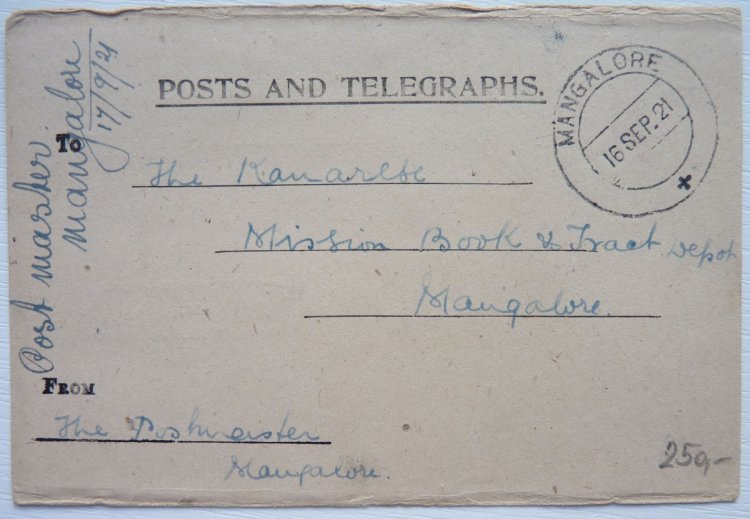 POSTS AND TELEGRAPHS.
MANGALORE
16 SEP. 21
Post master
Mangalore
17/9/21
To
The Kanarese
Mission Book & Tract Depot
Mangalore.
FROM
The Postmaster
Mangalore.
250,-